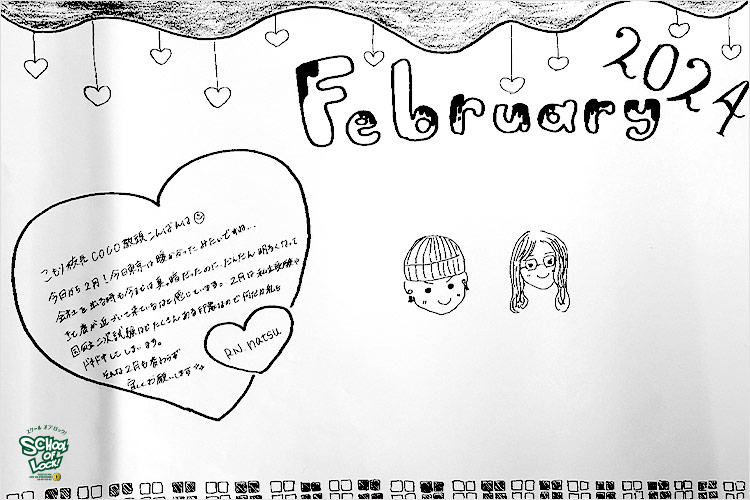 February 2024
こもり校長 COCO教頭こんばんは☺
今日から2月！今日東京は暖かったみたいですね…
会社を出る時も今までは真っ暗だったのに、だんだん明るくなって
きて春が近づいて来ているなと感じています。2月は私立受験や
国公立二次試験などたくさんある印象なので何だか私も
ドキドキしてしまいます。
そんな2月も変わらず
宜しくお願いします
R.N. natsu
スクール オブ ロック!
SCHOOL
OF
LOCK!